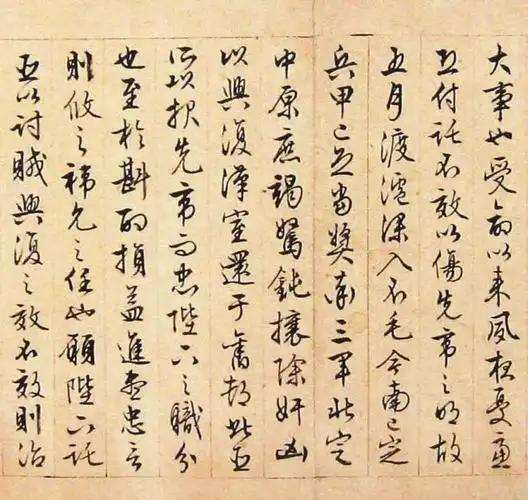 大事也受命以來夙夜憂慮
恐付託不效以傷先帝之明故
五月渡瀘深入不毛今南已定
兵甲已足當獎率三軍北定
中原庶竭駑鈍攘除奸凶
以興復漢室還于舊都此臣
所以報先帝而忠陛下之職分
也至於斟酌損益進盡忠言
則攸之禕允之任也願陛下託
臣以討賊興復之效不效則治